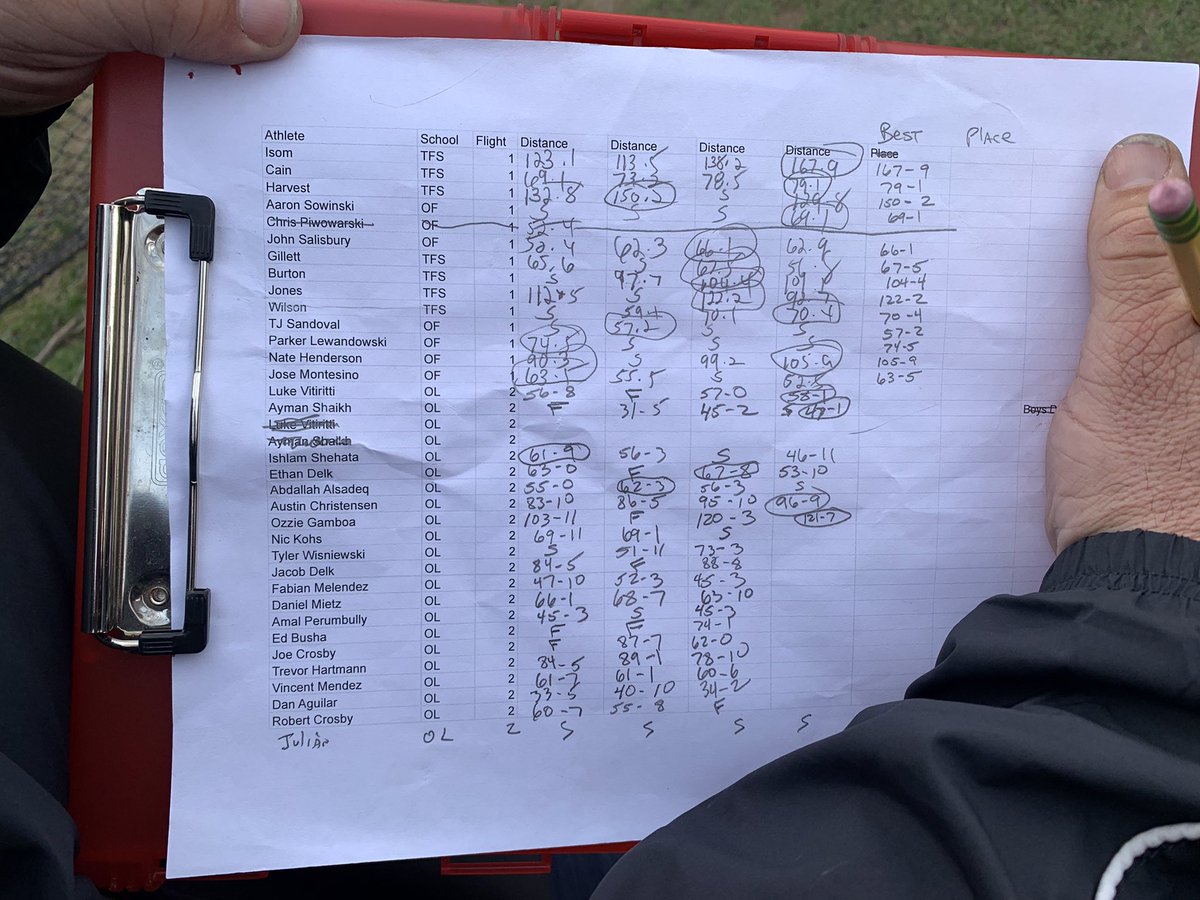 BEST Place
Athlete School Flight Distance Distance Distance Distance Place
Isom TFS 1 123.1 113.5 138.2 167.9 167-9
Cain TFS 1 69.1 73.2 78.5 79.1 79-1
Harvest TFS 1 132.8 150.2 S 150-2
Aaron Sowinski OF 1 S S S 69.1 69-1
Chris Piwowarski OF 1 52.4
John Salisbury OF 1 52.4 62.3 66.1 62.9 66-1
Gillett TFS 1 65.6 67-5
Burton TFS 1 S 97.7 104.4 104-4
Jones TFS 1 112.5 S 122.2 92.7 122-2
Wilson TFS 1 S 59.4 70.1 70.4 70-4
TJ Sandoval OF 1 S 57.2 S S 57-2
Parker Lewandowski OF 1 74.5 S S S 74-5
Nate Henderson OF 1 90.3 S 99.2 105.9 105-9
Jose Montesino OF 1 63.5 55.5 S 63-5
Luke Vitiritti OL 2 56-8 F 57-0 58-1
Ayman Shaikh OL 2 F 31-5 45-2 47-1
Boys D
Luke Vitiritti OL 2
Ayman Shaikh OL 2
Ishlam Shehata OL 2 61-9 56-3 S 46-11
Ethan Delk OL 2 63-0 F 67-8 53-10
Abdallah Alsadeq OL 2 55-0 62-3 56-3 S
Austin Christensen OL 2 83-10 86-5 95-10 96-9
Ozzie Gamboa OL 2 103-11 F 120-3 121-7
Nic Kohs OL 2 69-11 69-1 S
Tyler Wisniewski OL 2 S 51-11 73-3
Jacob Delk OL 2 84-5 F 88-8
Fabian Melendez OL 2 47-10 52-3 45-3
Daniel Mietz OL 2 66-1 68-7 63-10
Amal Perumbully OL 2 45-3 S 45-3
Ed Busha OL 2 F F 74-1
Joe Crosby OL 2 F 87-7 62-0
Trevor Hartmann OL 2 84-5 89-1 78-10
Vincent Mendez OL 2 61-7 61-1 60-6
Dan Aguilar OL 2 33-5 40-10 34-2
Robert Crosby OL 2 60-7 55-8 F
Julian OL 2 S S S S